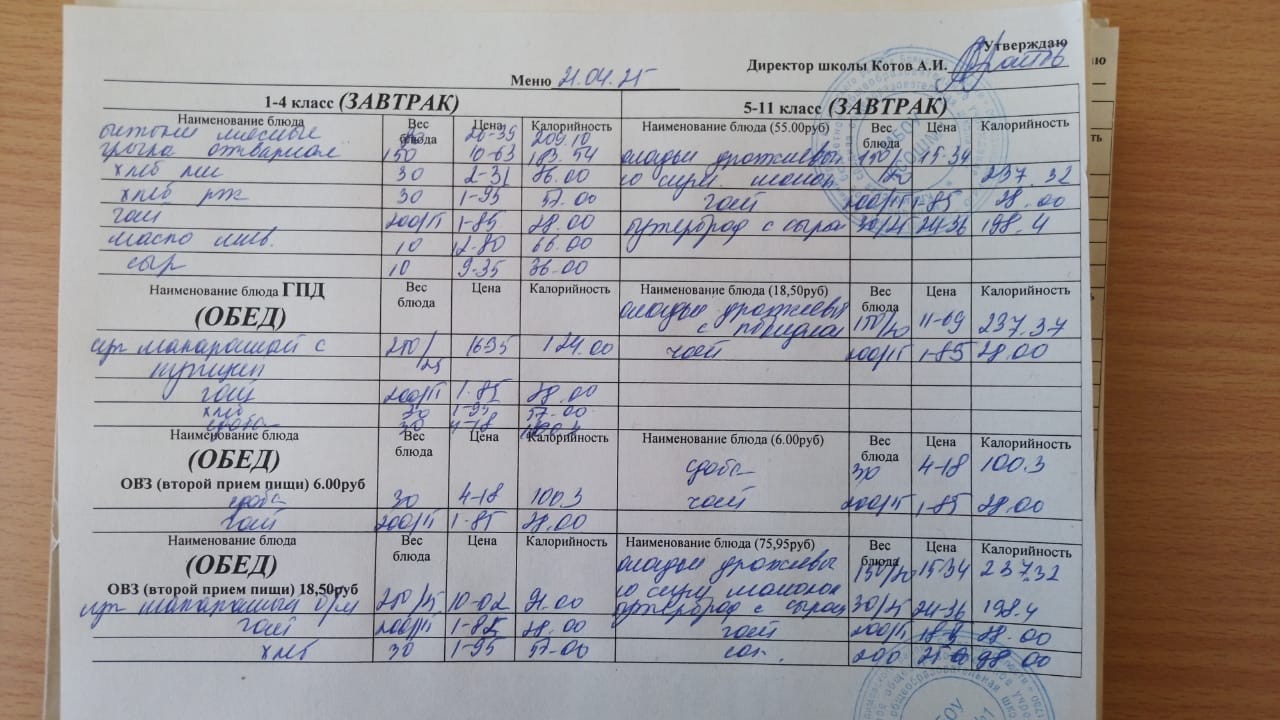 Утверждаю
Директор школы Котов А.И.
Меню 21.04.25
1-4 класс (ЗАВТРАК) 5-11 класс (ЗАВТРАК)
Наименование блюда Вес блюда Цена Калорийность Наименование блюда (55.00руб) Вес блюда Цена Калорийность
биточки мясные 20-35 209.10
гречка отварная 150 10-63 183.54 оладьи дрожжевые 150/ 15-34
хлеб пш 30 2-31 86.00 со сгущ. молок. 237.32
хлеб рж 30 1-95 57.00 чай 200/15 1-85 28.00
чай 200/15 1-85 28.00 бутерброд с сыром 30/25 24-36 198.4
масло слив. 10 12-80 66.00
сыр 10 9-35 36.00
Наименование блюда ГПД Вес блюда Цена Калорийность Наименование блюда (18,50руб) Вес блюда Цена Калорийность
(ОБЕД) оладьи дрожжевые
с повидлом 150/20 11-69 237.37
суп макаронный с 250/25 1635 124.00 чай 200/15 1-85 28.00
курицей
чай 200/15 1-85 28.00
хлеб 30 1-95 57-00
сдоба 30 4-18
Наименование блюда Вес блюда Цена Калорийность Наименование блюда (6.00руб) Вес блюда Цена Калорийность
(ОБЕД) сдоба 30 4-18 100.3
ОВЗ (второй прием пищи) 6.00руб
сдоба 30 4-18 100.3 чай 200/15 1-85 28.00
чай 200/15 1-85 28.00
Наименование блюда Вес блюда Цена Калорийность Наименование блюда (75,95руб) Вес блюда Цена Калорийность
(ОБЕД) оладьи дрожжевые 150/20 15-34 237.32
ОВЗ (второй прием пищи) 18,50руб со сгущ молоком
суп макаронный б/м 250/25 10-02 91.00 бутерброд с сыром 30/25 24-36 198.4
чай 200/15 1-85 28.00 чай 200/15 28.00
хлеб 30 1-95 57-00 сок. 200 98.00